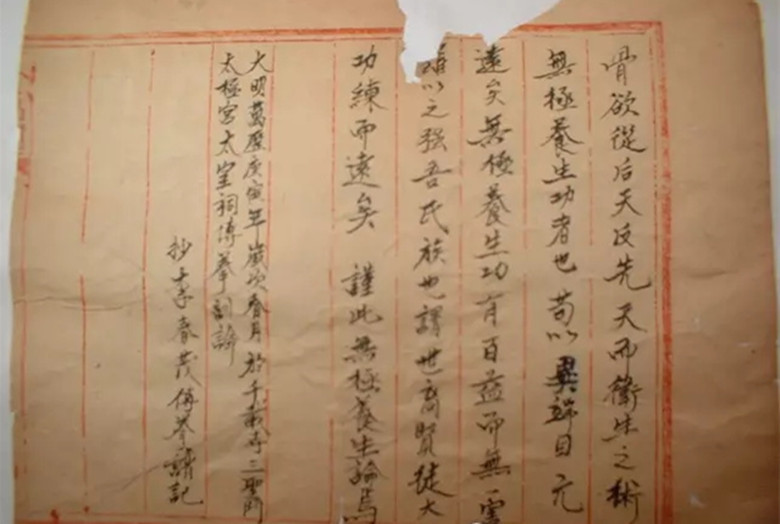 骨欲從后天反先天而衛生之術
無極養生功者也苟以異端目元
遠矣無極養生功有百益而無一害
以之强吾氏族也謂世裔賢徒大
功練而遠矣 謹此無極養生論焉
大明萬歷庚寅年歲次春月於千載寺三聖門
太極宮太室祠傳拳劍論
抄李春茂傳拳譜記